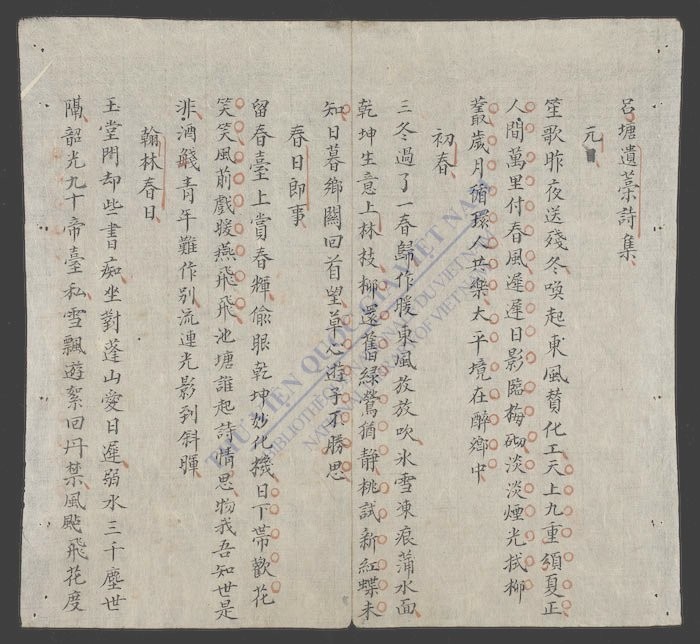 呂塘遺藁詩集
元
笙歌昨夜送殘冬喚起東風賛化工天上九重頒夏正
人間萬里付春風遲遲日影臨梅砌淡淡煙光拭柳
叢歲月循環人共樂太平境在醉鄉中
初春
三冬過了一春歸作暖東風放放吹氷雪凍痕蒲水面
乾坤生意上林枝柳還舊緑鶯猶静桃試新紅蝶未
知日暮鄉關回首望草心遊子不勝思
春日即事
留春臺上賞春輝偷眼乾坤妙化機日下帶歡花
笑笑風前戲暖燕飛飛池塘誰起詩情思物我吾知世是
非酒餞青年難作别流連光影到斜暉
翰林春日
玉堂閒却些書痴坐對蓬山愛日遲弱水三千塵世
隔韶光九十帝臺私雪飄遊絮回丹禁風颭飛花度
THƯ VIỆN QUỐC GIA VIỆT NAM
BIBLIOTHÈQUE NATIONALE DU VIETNAM
NATIONAL LIBRARY OF VIETNAM